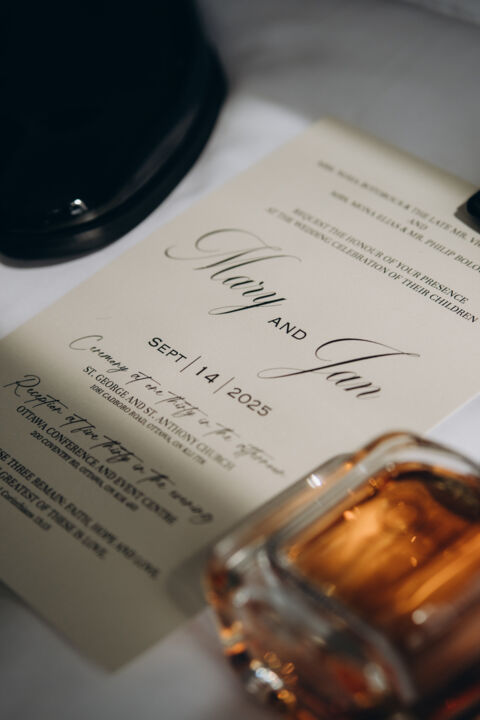 MRS. & THE LATE MR.
AND
MRS. MONA ELIAS & MR. PHILIP
REQUEST THE HONOUR OF YOUR PRESENCE
AT THE WEDDING CELEBRATION OF THEIR CHILDREN
Mary
AND
Jan
SEPT | 14 | 2025
Ceremony at one thirty in the afternoon
ST. GEORGE AND ST. ANTHONY CHURCH
1081 CADBORO ROAD, OTTAWA, ON K1J 7T8
Reception at five thirty in the evening
OTTAWA CONFERENCE AND EVENT CENTRE
200 COVENTRY RD, OTTAWA, ON K1K 4S3
THREE REMAIN: FAITH, HOPE AND LOVE.
GREATEST OF THESE IS LOVE.
Corinthians 13:13